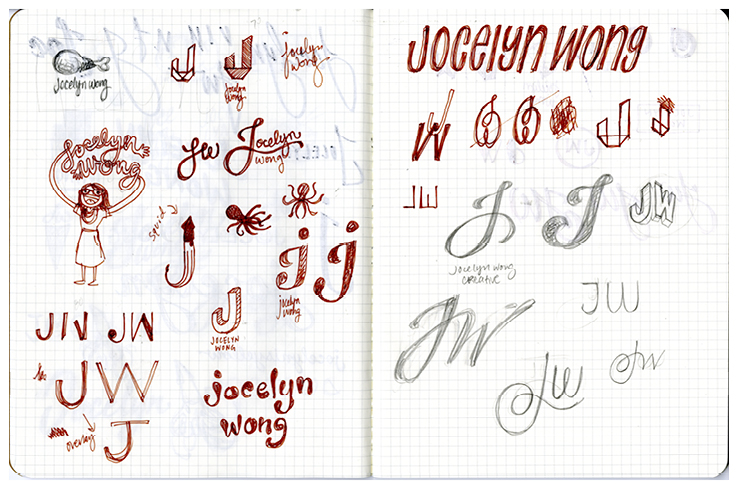 jocelyn wong
J
J
jocelyn
wong
jocelyn
wong
jocelyn
wong
JW
Jocelyn
wong
squid
J
j
jocelyn
wong
j
J
JOCELYN
WONG
JW
JW
JW
overlay
J
jocelyn
wong
JOCELYN WONG
W
J
J
JW
J
J
JW
Jocelyn wong
creative
JW
JW
JW
JW